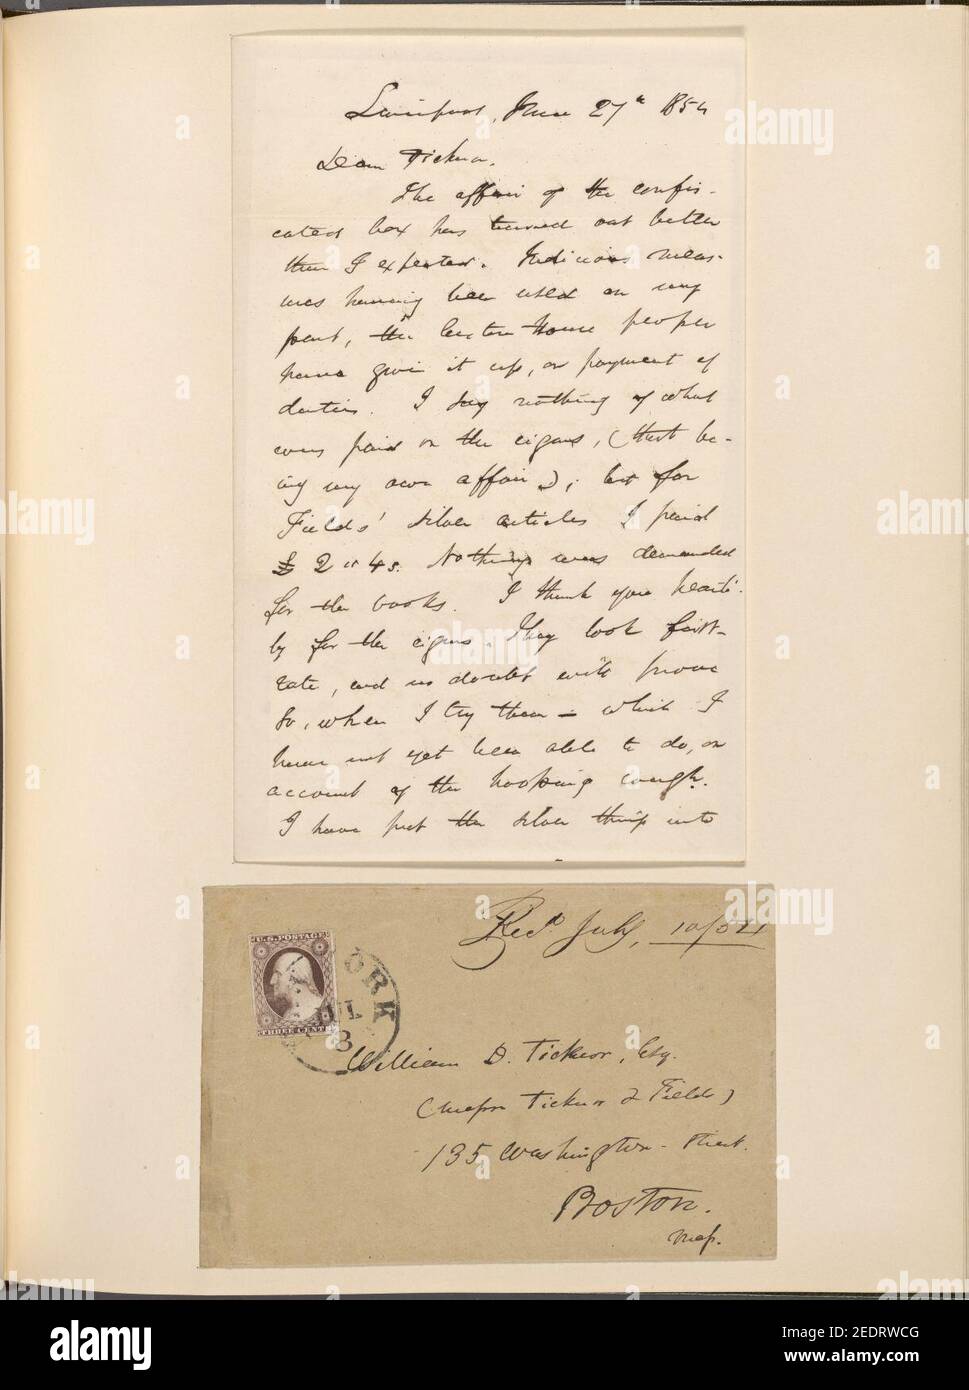 Liverpool, June 27th 1854
Dear Ticknor.
The affair of the confis-
cated box has turned out better
than I expected. Judicious meas-
ures having been used on my
part, the Custom House people
have given it up, on payment of
duties. I say nothing of what
was paid on the cigars, (that be-
ing my own affair); but for
Fields' silver articles I paid
£ 2 " 4s. Nothing was demanded
for the books. I thank you hearti-
ly for the cigars. They look first-
rate, and no doubt will prove
so, when I try them — which I
have not yet been able to do, on
account of the hooping cough.
I have put the silver things into
Recd July, 10/54
U.S. POSTAGE
THREE CENTS
YORK
JUL
8
William D. Ticknor, Esq.
(Messrs Ticknor & Fields)
135 Washington Street.
Boston.
Mass.
alamy
alamy
Image ID: 2EDRWCG
www.alamy.com